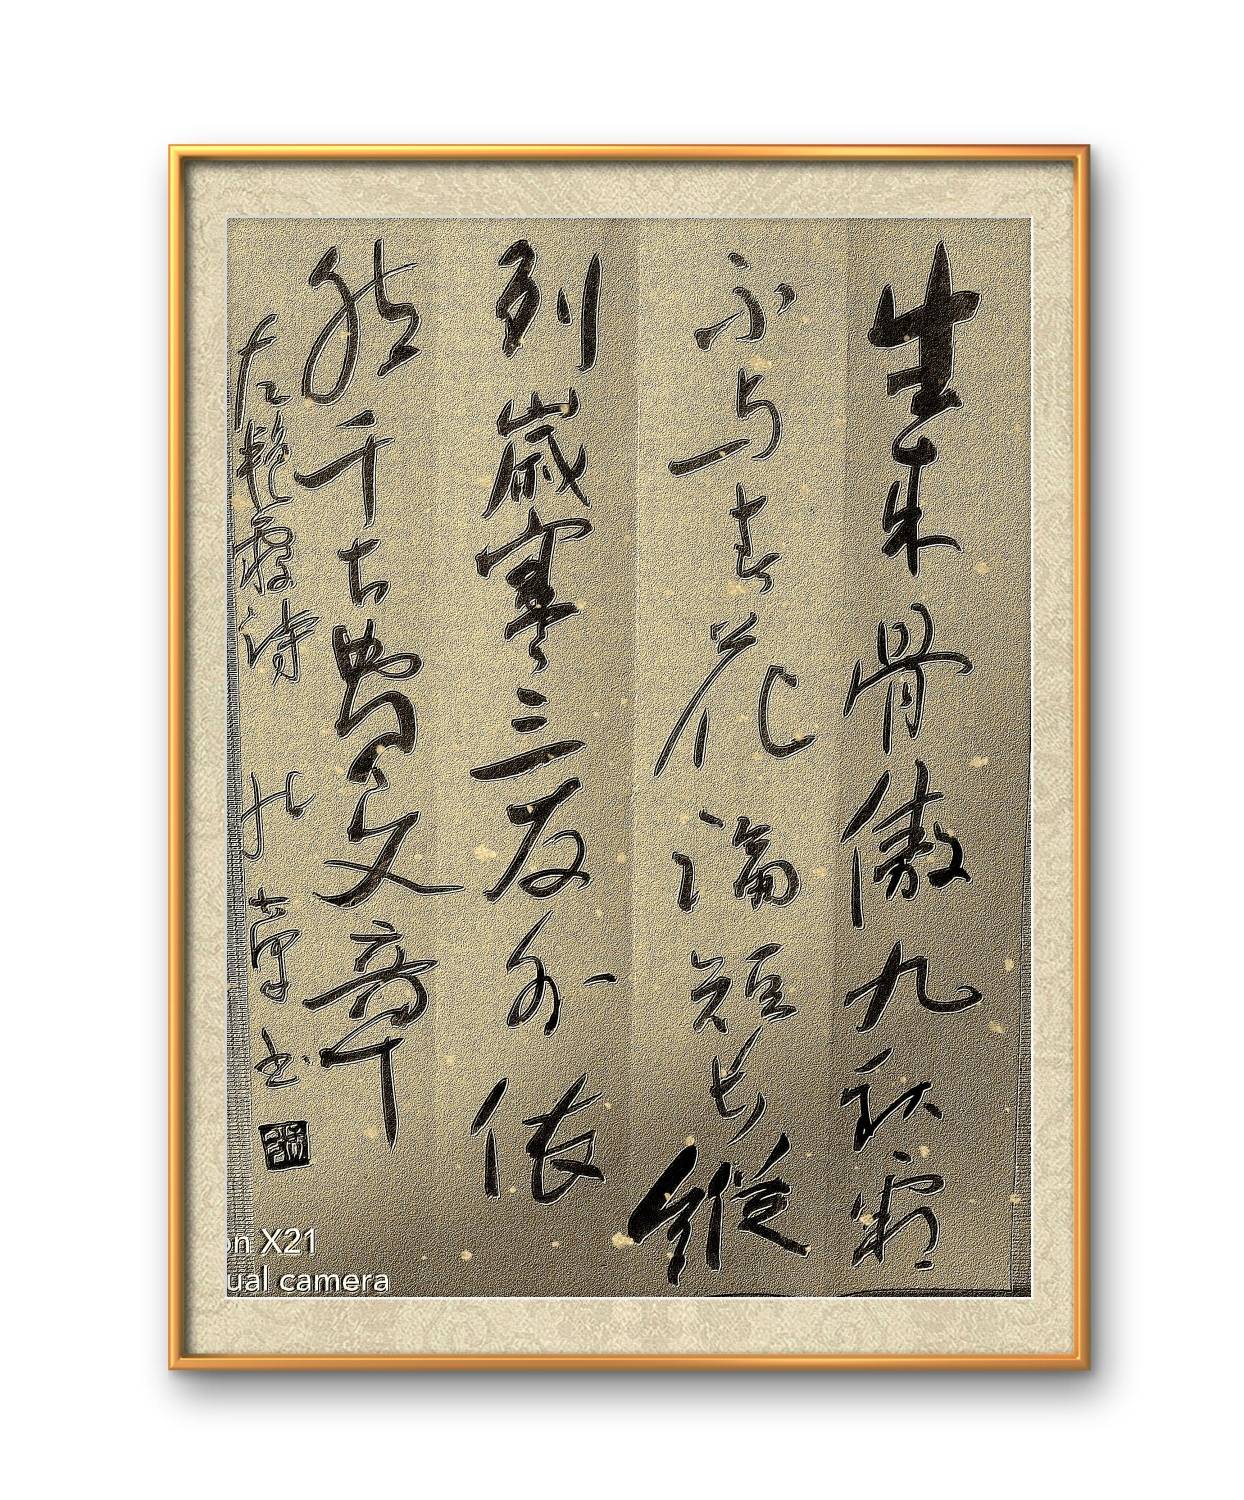 生来骨傲九秋霜
不与春花論短长縱
列歲寒三友外依
然千古費文章
诗 书
on X21
ual camera